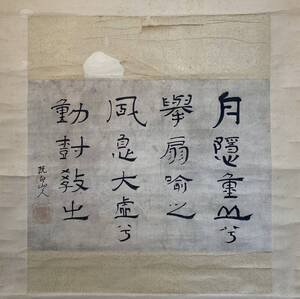 月隱重山兮
擧扇喩之
風息大虛兮
動樹教之
山人